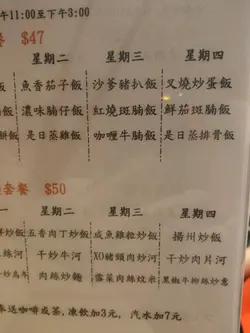 午11:00至下午3:00
餐 $47
星期二 星期三 星期四
飯 魚香茄子飯 沙爹豬扒飯 叉燒炒蛋飯
飯 濃味腩仔飯 紅燒斑腩飯 鮮茄斑腩飯
餅飯 是日蒸雞飯 咖喱牛腩飯 是日蒸排骨飯
套餐 $50
星期二 星期三 星期四
炒飯 五香肉丁炒飯 咸魚雞粒炒飯 揚州炒飯
絲河 干炒牛河 XO豬頸肉炒河 干炒肉片河
炒烏冬 肉絲炒麵 雪菜肉絲炆米 黑椒牛柳絲炒意
送咖啡或茶,凍飲加3元, 汽水加7元